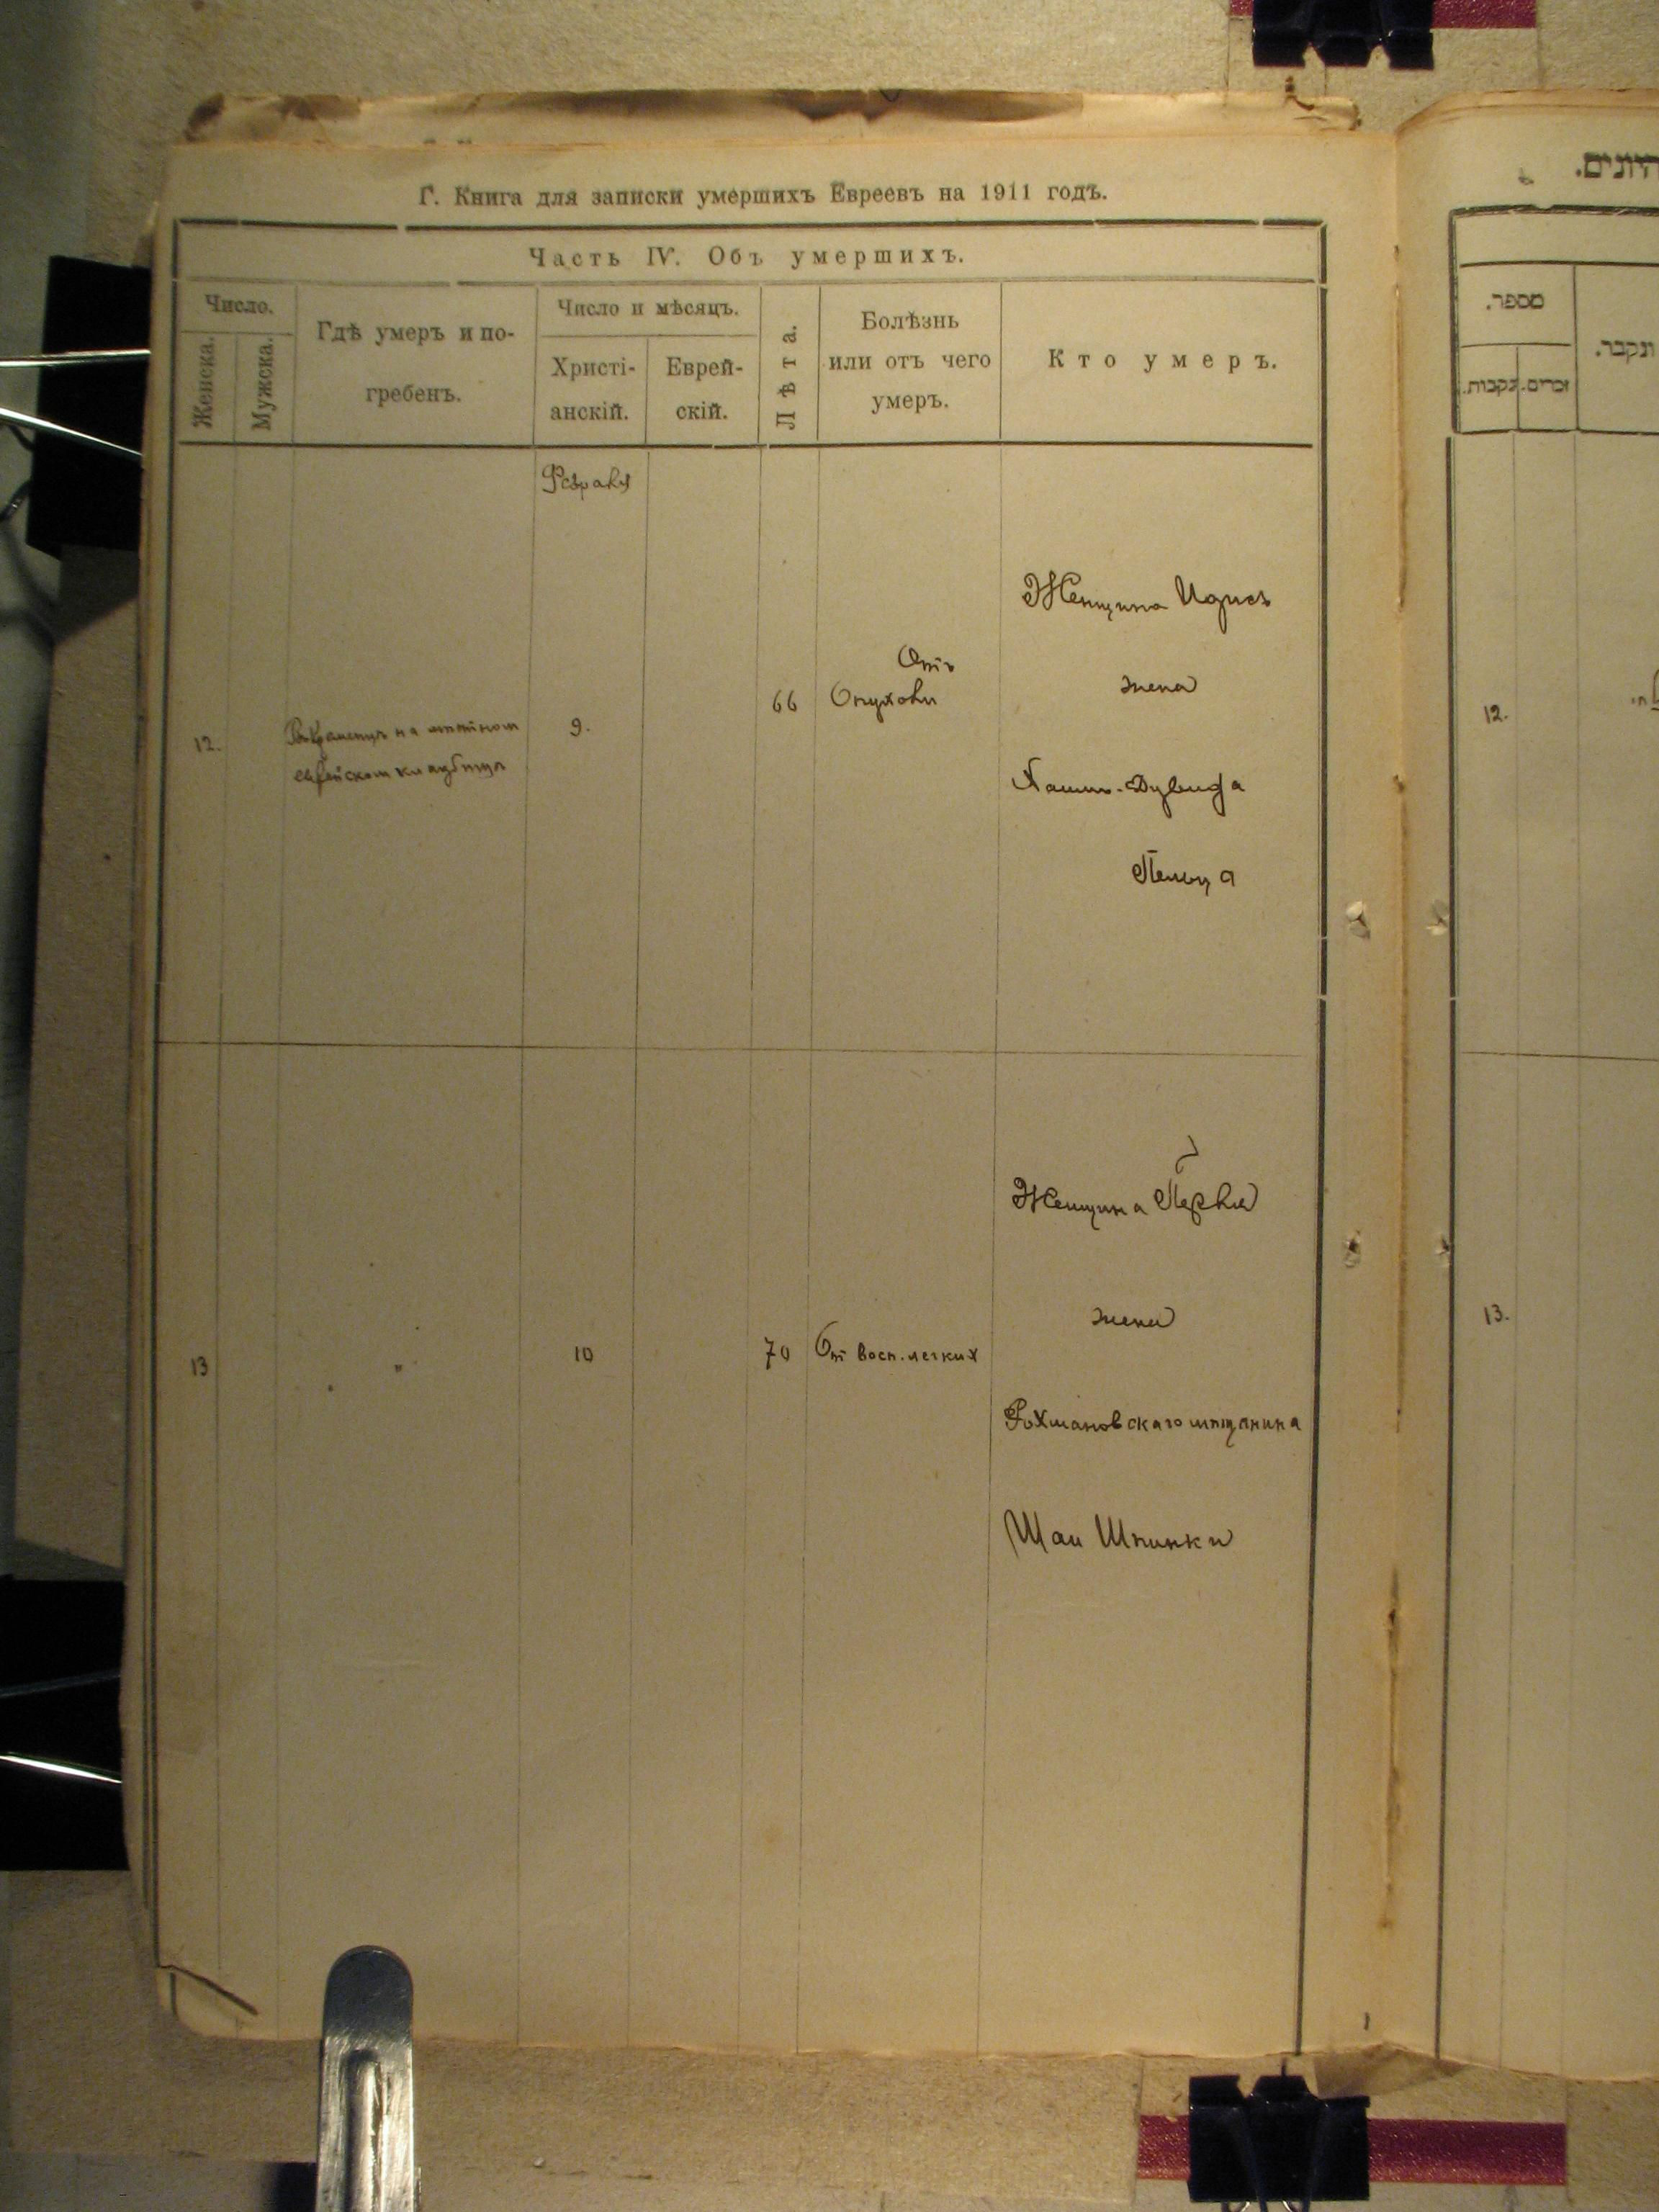 Г. Книга для записки умершихъ Евреевъ на 1911 годъ.
Часть IV. Объ умершихъ.
Число.
Женска.
Мужска.
Гдѣ умеръ и по-
гребенъ.
Число и мѣсяцъ.
Христі-
анскій.
Еврей-
скій.
Лѣта.
Болѣзнь
или отъ чего
умеръ.
Кто умеръ.
Февраля
12.
на мѣстном
еврейском кладбищѣ
9.
66
Отъ
Опухоли
Женщина
жена
Дувида
Пельца
13
"
10
70
От восп. легких
Женщина Перля
жена
Рохмановскаго мѣщанина
Шаи Шпинки
היונים.
מספר.
נקבות.
זכרים.
ונקבר.
12.
13.